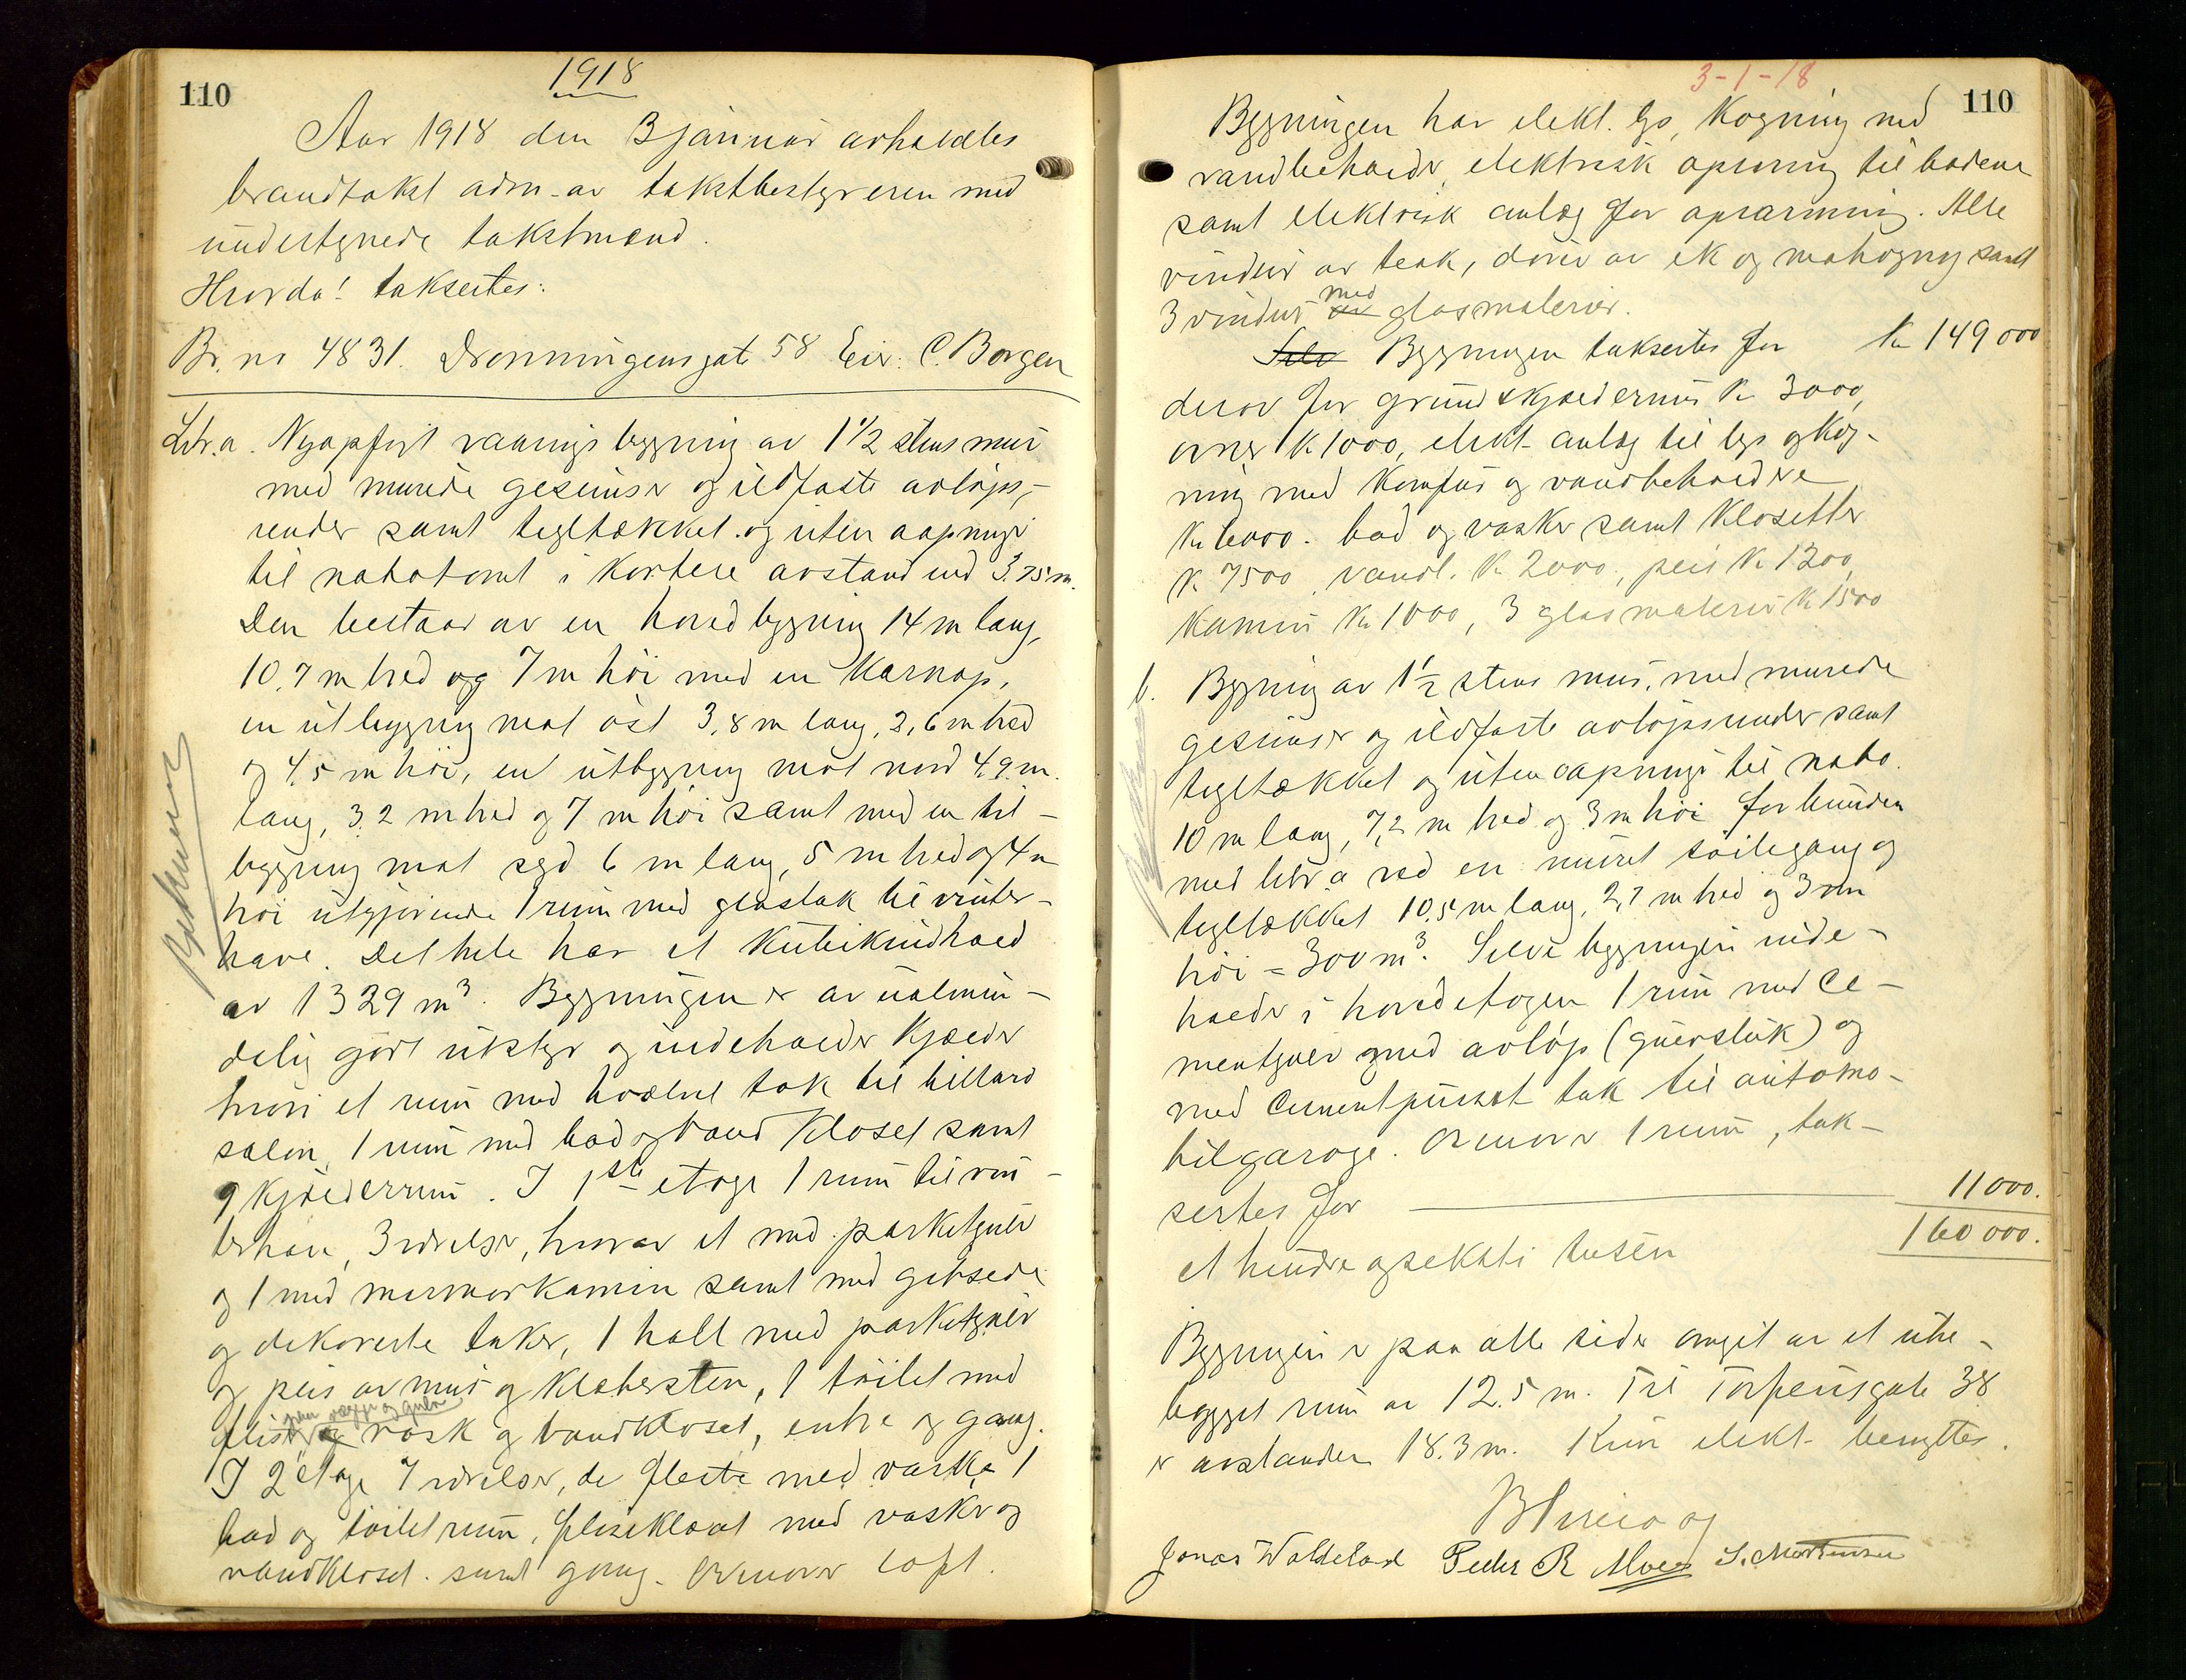 110
1918
Aar 1918 den 3 januar avholdtes
brandtakst adm. av takstbestyreren med
undertegnede takstmænd.
Hvorda! taksertes:
Br. no 4831. Dronningensgate 58 Eier: C. Borgen
Litr. a. Nyopført vaanings bygning av 1 1/2 stens mur
med murede gesimser og ildfaste avløps-
render samt tegltækket og uten aapninger
til nabotomt i kortere avstand end 3.75 m.
Den bestaar av en hovedbygning 14 m lang,
10,7 m bred og 7 m høi med en karnap,
en utbygning mot øst 3,8 m lang, 2,6 m bred
og 4,5 m høi, en utbygning mot nord 4,9 m.
lang, 3.2 m bred og 7 m høi samt med en til-
bygning mot syd 6 m lang, 5 m bred og 4 m
høi utgjørende 1 rum med glastak til vinter-
have. Det hele har et kubikindhold
av 1329 m³. Bygningen er av ualmin-
delig godt utstyr og indeholder kjælder
hvori et rum med hvælvet tak til billard
salon, 1 rum med bad og vand kloset samt
9 kjælderrum. I 1ste etage 1 rum til vin-
terhave, 3 værelser, hvorav et med parketgulv
og 1 med marmorkamin samt med gibsede
og dekorerte taker, 1 hall med parketgulv
og peis av mur og klebersten, 1 toilet med
paa vægge og gulv
fliser og vask og vandkloset, entre og gang.
I 2 etage 7 værelser, de fleste med vaske, 1
bad og toiletrum, fliseklædt med vasker og
vandkloset. samt gang. Ovenover loft.
3-1-18
110
Bygningen har elekt. lys, kogning med
vandbeholder, elektrisk opvarming til badene
samt elektrisk anlæg for opvarmning. Alle
vinduer av teak, dører av ek og mahogny samt
3 vinduer av med glasmalerier.
Selv Bygningen taksertes for Kr 149 000
derav for grund & kjælderrum Kr 3000,
ovner Kr 1000, elekt. anlæg til lys og kog-
ning med komfur og vandbeholdere
Kr 6000. bad og vasker samt klosetter
Kr 7500, vandl. Kr 2000, peis Kr 1200,
kamin Kr 1000, 3 glasmalerier Kr 1500
b. Bygning av 1 1/2 stens mur, med murede
gesimser og ildfaste avløpsrender samt
tegltækket og uten aapninger til nabo.
10 m lang, 7,2 m bred og 3 m høi forbunden
med litr a ved en muret søilegang og
tegltækket 10,5 m lang, 2,7 m bred og 3 m
høi = 300 m³. Selve bygningen inde-
holder i hovedetagen 1 rum med ce-
mentgulv med avløp (gulvsluk) og
med cementpusset tak til automo-
bilgarage. Ovenover 1 rum, tak-
sertes for 11 000.
160 000.
et hundre og seksti tusen
Bygningen er paa alle sider omgit av et ube-
bygget rum av 12.5 m. Til Torfeusgate 38
er avstanden 18.3 m. Kun elekt. benyttes.
Jonas Waldeland Peder R Moen S. Mortensen